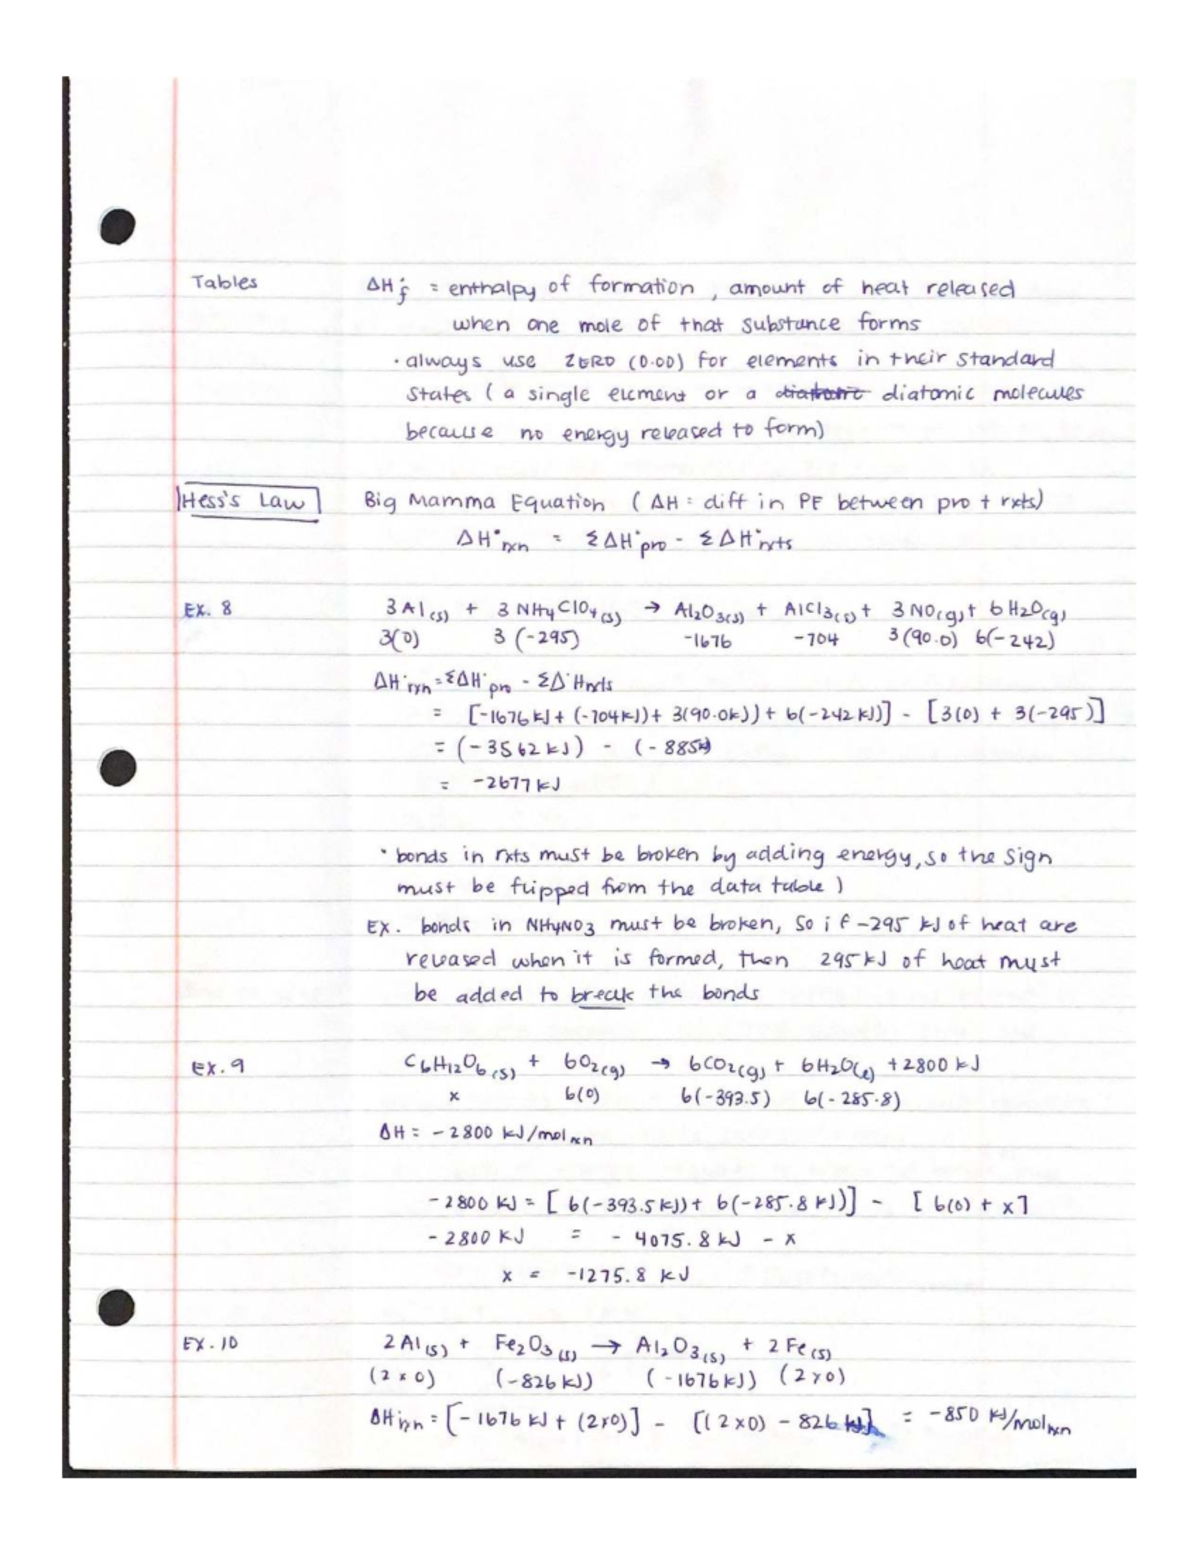 Tables ΔH°f = enthalpy of formation, amount of heat released
when one mole of that substance forms
· always use ZERO (0.00) for elements in their standard
states (a single element or a diatomic diatomic molecules
because no energy released to form)
Hess's Law Big Mamma Equation (ΔH: diff in PE between pro + rxts)
ΔH°rxn = ΣΔH°pro - ΣΔH°rxts
Ex. 8 3Al(s) + 3NH4ClO4(s) → Al2O3(s) + AlCl3(s) + 3NO(g) + 6H2O(g)
3(0) 3(-295) -1676 -704 3(90.0) 6(-242)
ΔH°rxn = ΣΔH°pro - ΣΔ°Hrxts
= [-1676 kJ + (-704 kJ) + 3(90.0 kJ) + 6(-242 kJ)] - [3(0) + 3(-295)]
= (-3562 kJ) - (-885 kJ)
= -2677 kJ
· bonds in rxts must be broken by adding energy, so the sign
must be flipped from the data table)
Ex. bonds in NH4NO3 must be broken, so if -295 kJ of heat are
released when it is formed, then 295 kJ of heat must
be added to break the bonds
Ex. 9 C6H12O6(s) + 6O2(g) → 6CO2(g) + 6H2O(l) + 2800 kJ
x 6(0) 6(-393.5) 6(-285.8)
ΔH = -2800 kJ/mol rxn
-2800 kJ = [6(-393.5 kJ) + 6(-285.8 kJ)] - [6(0) + x]
-2800 kJ = -4075.8 kJ - x
x = -1275.8 kJ
Ex. 10 2Al(s) + Fe2O3(s) → Al2O3(s) + 2Fe(s)
(2×0) (-826 kJ) (-1676 kJ) (2×0)
ΔH°rxn = [-1676 kJ + (2×0)] - [(2×0) - 826 kJ] = -850 kJ/mol rxn